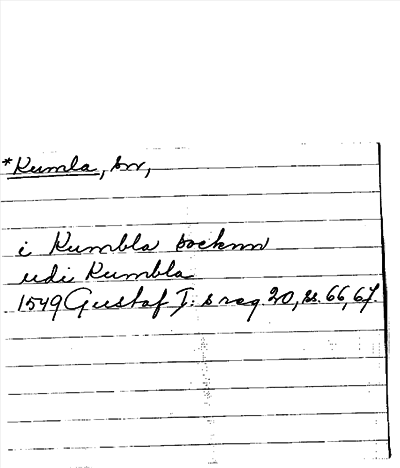 *Kumla, sn,
i Kumbla socknn
udi Kumbla
1549 Gustaf I:s reg. 20, ss. 66, 67.